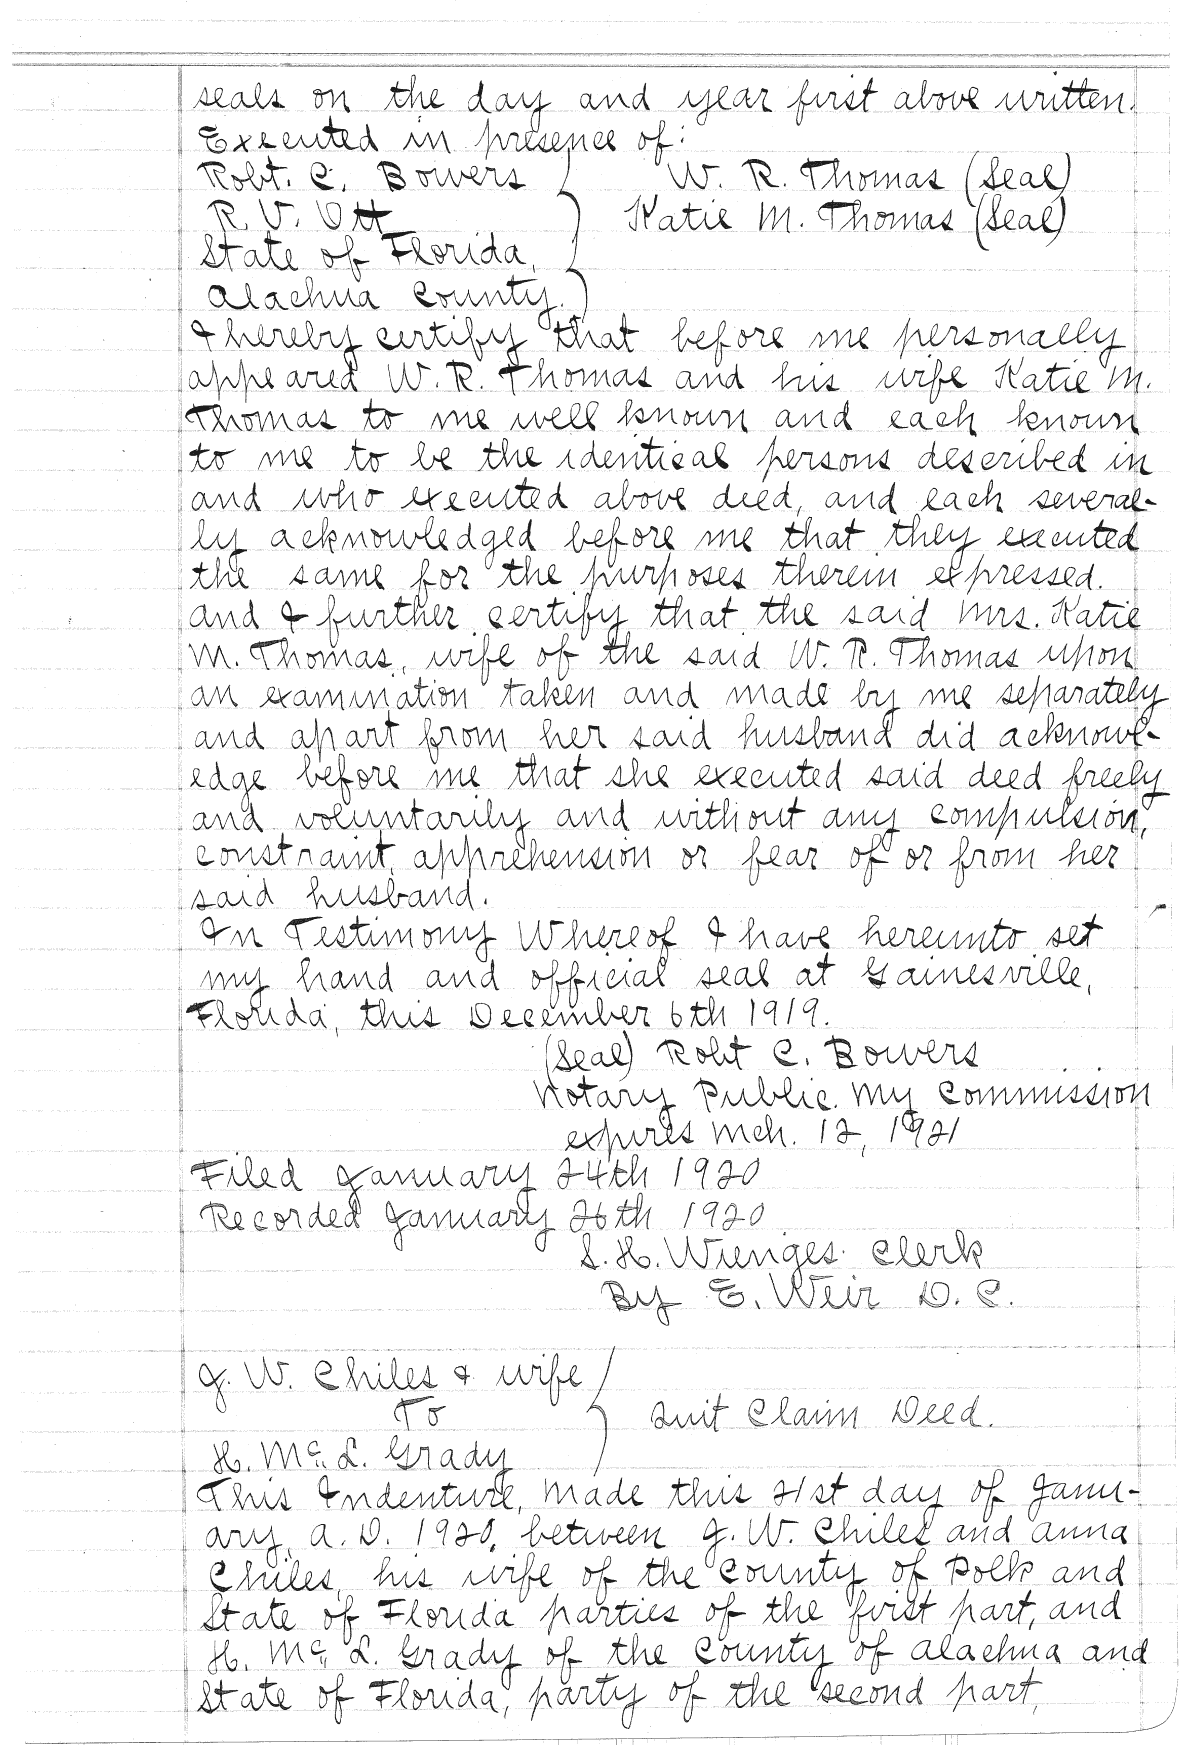 seals on the day and year first above written.
Executed in presence of:
Robt. C. Bowers W. R. Thomas (Seal)
R. V. Ott Katie M. Thomas (Seal)
State of Florida,
Alachua County.
I hereby certify that before me personally
appeared W. R. Thomas and his wife Katie M.
Thomas to me well known and each known
to me to be the identical persons described in
and who executed above deed, and each several-
ly acknowledged before me that they executed
the same for the purposes therein expressed.
and I further certify that the said Mrs. Katie
M. Thomas, wife of the said W. R. Thomas upon
an examination taken and made by me separately
and apart from her said husband did acknowl-
edge before me that she executed said deed freely
and voluntarily and without any compulsion,
constraint, apprehension or fear of or from her
said husband.
In Testimony Whereof I have hereunto set
my hand and official seal at Gainesville,
Florida, this December 6th 1919.
(Seal) Robt C. Bowers
Notary Public. My Commission
expires Mch. 12, 1921
Filed January 24th 1920
Recorded January 26th 1920
S. H. Wienges Clerk
By E. Weir D. C.
J. W. Chiles & wife
To Quit Claim Deed.
H. Mc. L. Grady
This Indenture, Made this 21st day of Janu-
ary, A. D. 1920, between J. W. Chiles and Anna
Chiles, his wife of the County of Polk and
State of Florida parties of the first part, and
H. Mc. L. Grady of the County of Alachua and
State of Florida, party of the second part,